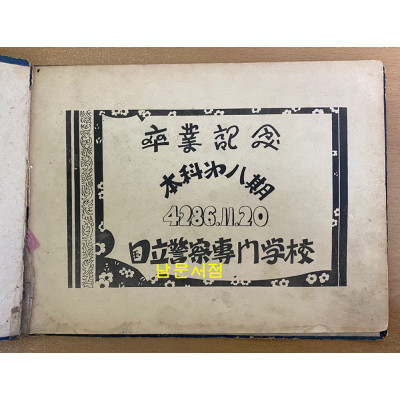 卒業記念
本科第八期
4286.11.20
国立警察專門学校
남문서점